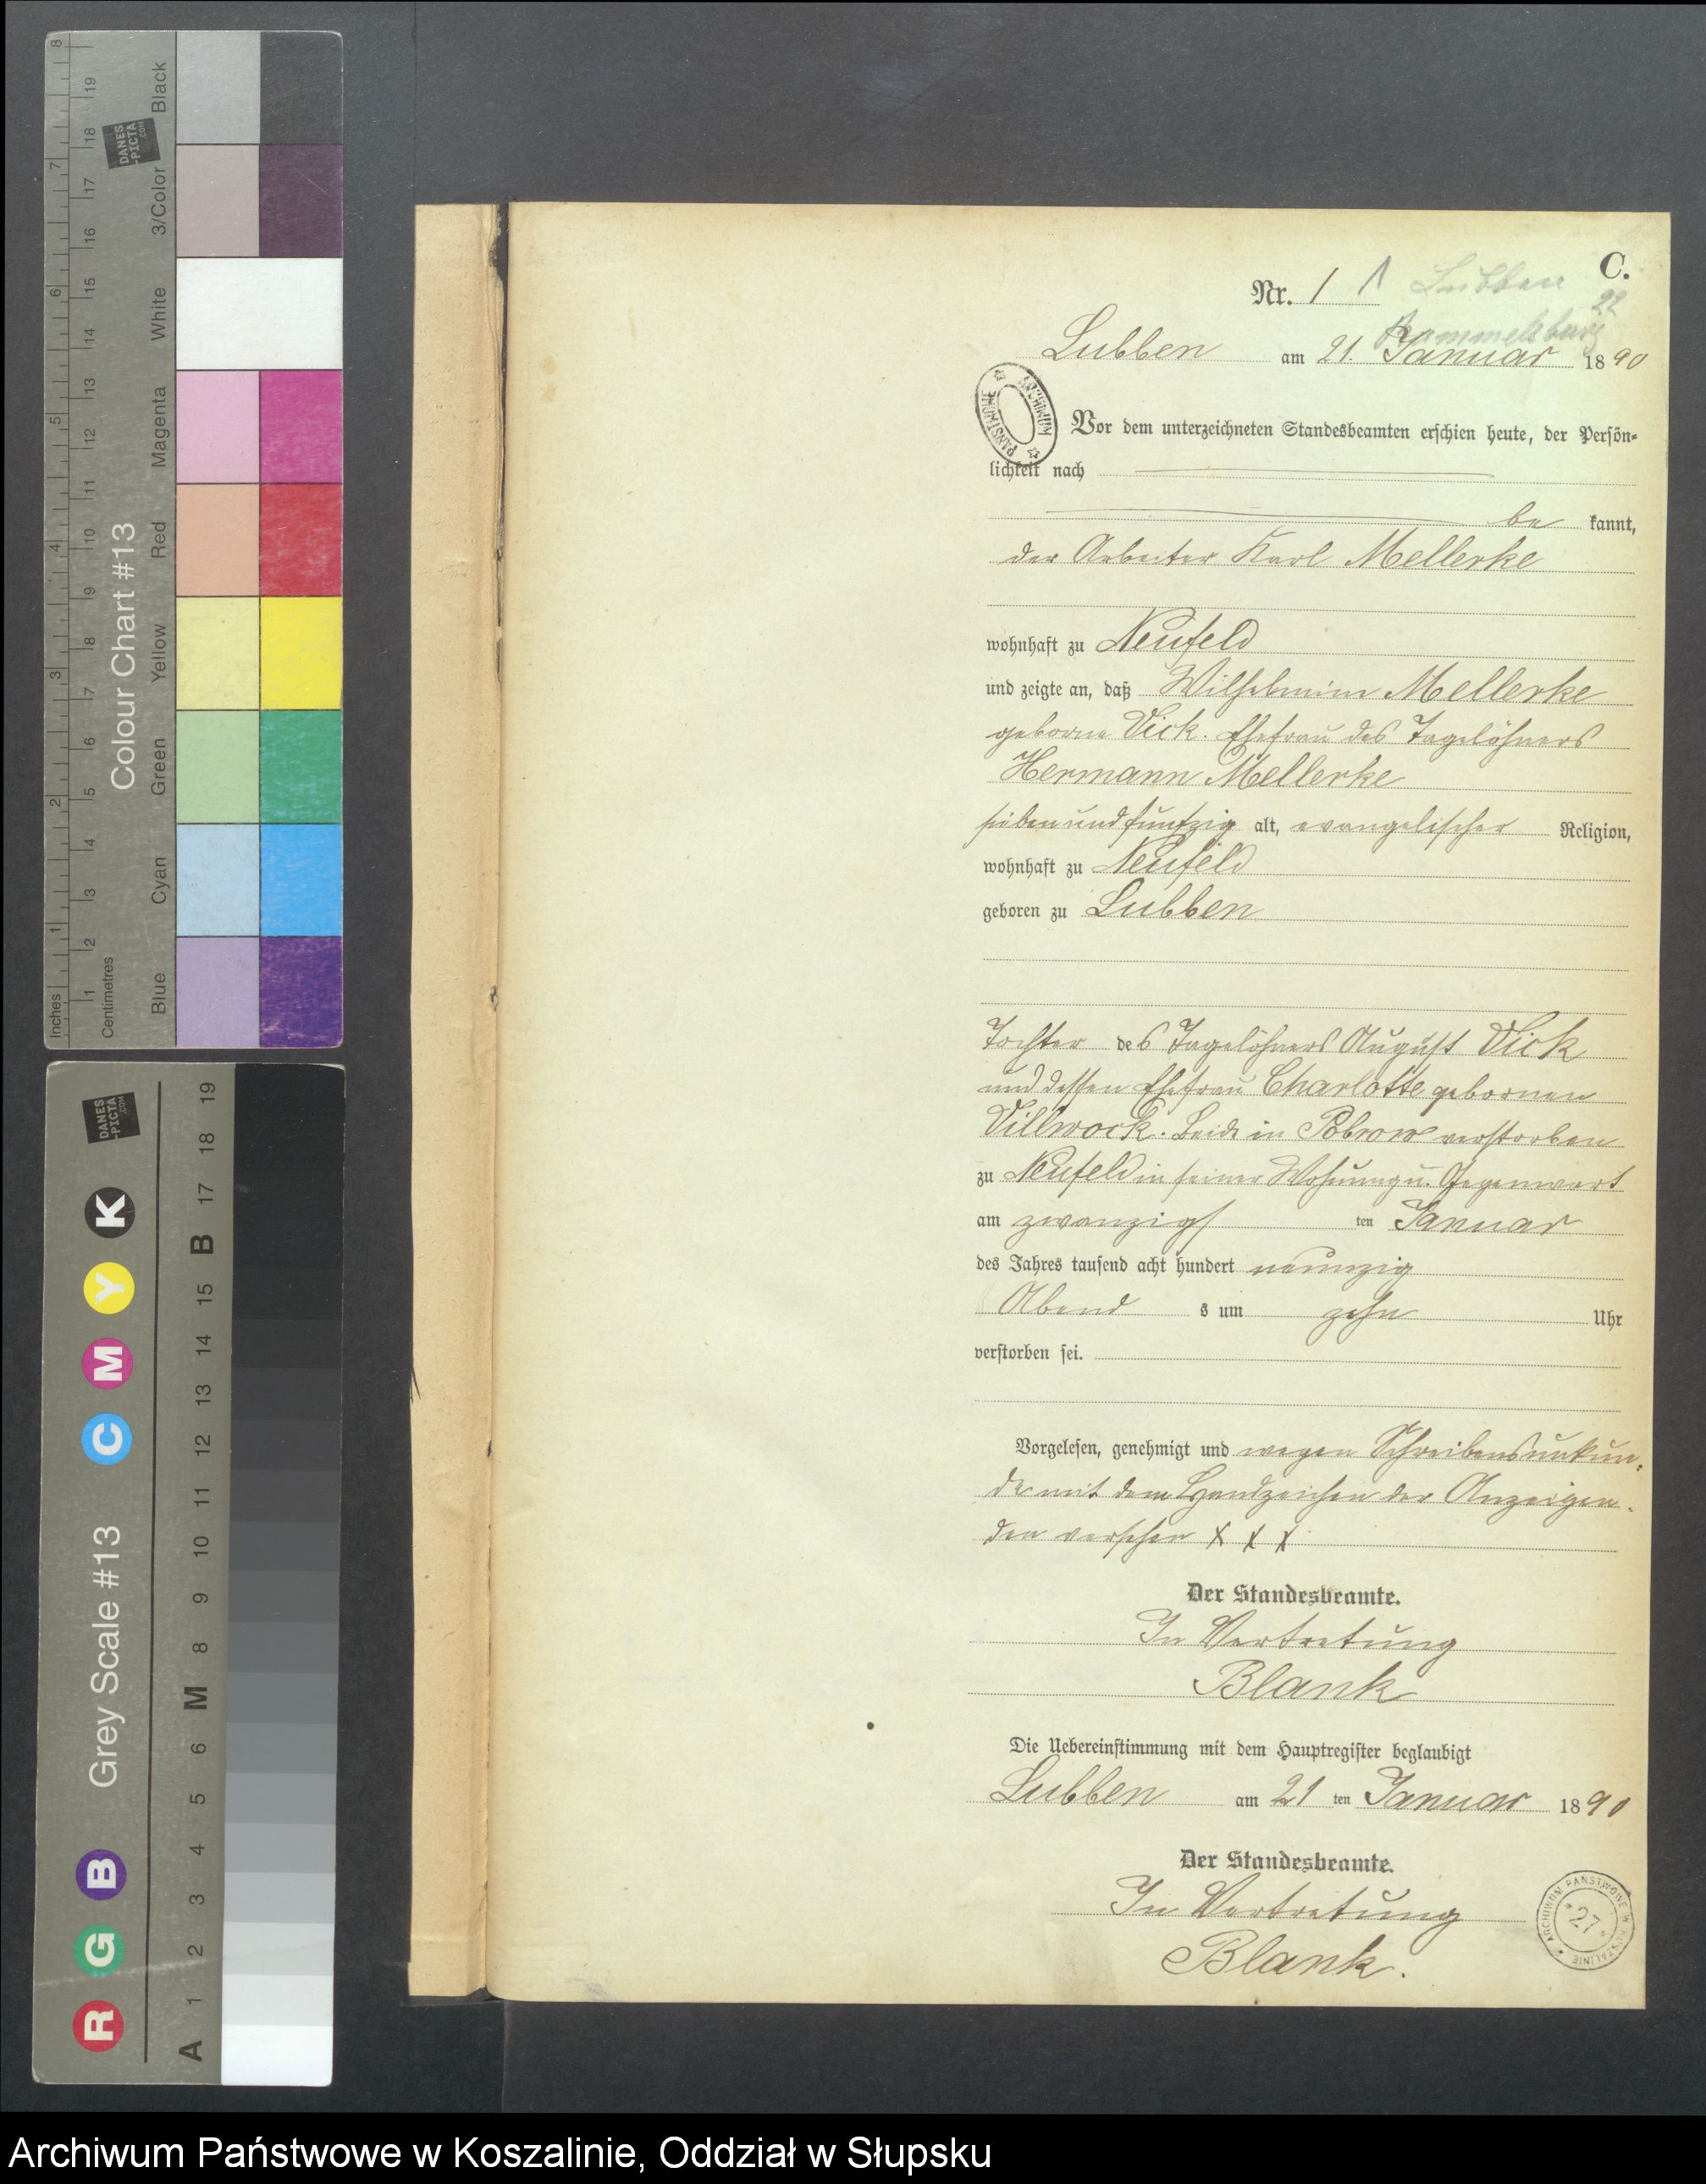 C.
Nr. 1 1 Lubben
22
Rummelsburg
Lubben am 21. Januar 1890
ARCHIWUM PAŃSTWOWE
Vor dem unterzeichneten Standesbeamten erschien heute, der Persön-
lichkeit nach
be kannt,
der Arbeiter Karl Mellerke
wohnhaft zu Neufeld
und zeigte an, daß Wilhelmine Mellerke
geborne Vick. Ehefrau des Tagelöhners
Hermann Mellerke
sieben und funfzig alt, evangelischer Religion,
wohnhaft zu Neufeld
geboren zu Lubben
Tochter des Tagelöhners August Vick
und dessen Ehefrau Charlotte gebornen
Villwock. Beide in verstorben
zu Neufeld in seiner Wohnung u. Gegenwart
am zwanzigs ten Januar
des Jahres tausend acht hundert neunzig
Abend s um zehn Uhr
verstorben sei.
Vorgelesen, genehmigt und wegen Schreibensunkun-
de mit dem Handzeichen der Anzeigen-
den versehen X X X
Der Standesbeamte.
In Vertretung
Blank
Die Uebereinstimmung mit dem Hauptregister beglaubigt
Lubben am 21 ten Januar 1890
Der Standesbeamte.
In Vertretung
Blank.
ARCHIWUM PAŃSTWOWE W KOSZALINIE
* 27 *
Colour Chart #13
Blue Cyan Green Yellow Red Magenta White 3/Color Black
Inches 1 2 3 4 5 6 7 8
Centimetres 1 2 3 4 5 6 7 8 9 10 11 12 13 14 15 16 17 18 19
DANES
-PICTA
.COM
Grey Scale #13
R G B C M Y K
A 1 2 3 4 5 6 M 8 9 10 11 12 13 14 15 B 17 18 19
DANES
-PICTA
.COM
Archiwum Państwowe w Koszalinie, Oddział w Słupsku